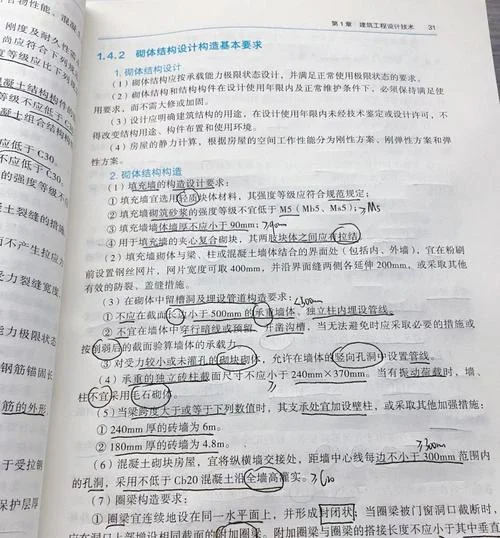 第1章 建筑工程设计技术 31
1.4.2 砌体结构设计构造基本要求
1. 砌体结构设计
（1）砌体结构应按承载能力极限状态设计，并满足正常使用极限状态的要求。
（2）砌体结构和结构构件在设计使用年限内及正常维护条件下，必须保持满足使
用要求，而不需大修或加固。
（3）设计应明确建筑结构的用途，在设计使用年限内未经技术鉴定或设计许可，不
得改变结构用途、构件布置和使用环境。
（4）房屋的静力计算，根据房屋的空间工作性能分为刚性方案、刚弹性方案和弹
性方案。
2. 砌体结构构造
（1）填充墙的构造设计要求：
① 填充墙宜选用轻质块体材料，其强度等级应符合规范规定；
② 填充墙砌筑砂浆的强度等级不宜低于M5（Mb5、Ms5）； ≥M5
③ 填充墙墙体墙厚不应小于90mm； ≥90
④ 用于填充墙的夹心复合砌块，其两肢块体之间应有拉结。
（2）填充墙砌体墙与梁、柱或混凝土墙体结合的界面处（包括内、外墙），宜在粉刷
前设置钢丝网片，网片宽度可取400mm，并沿界面缝两侧各延伸200mm，或采取其他
有效的防裂、盖缝措施。
（3）在砌体中留槽洞及埋设管道构造要求：
① 不应在截面长边小于500mm的承重墙体、独立柱内埋设管线。
② 不宜在墙体中穿行暗线或预留、开凿沟槽，当无法避免时应采取必要的措施或
按削弱后的截面验算墙体的承载力。
③ 对受力较小或未灌孔的砌块砌体，允许在墙体的竖向孔洞中设置管线。
（4）承重的独立砖柱截面尺寸不应小于240mm×370mm。当有振动荷载时，墙、
柱不宜采用毛石砌体。
（5）当梁跨度大于或等于下列数值时，其支承处宜加设壁柱，或采取其他加强措施：
① 240mm厚的砖墙为6m。
② 180mm厚的砖墙为4.8m。
（6）混凝土砌块房屋，宜将纵横墙交接处，距墙中心线每边不小于300mm范围内
的孔洞，采用不低于Cb20混凝土沿全墙高灌实。
（7）圈梁构造要求：
① 圈梁宜连续地设在同一水平面上，并形成封闭状；当圈梁被门窗洞口截断时，
应在洞口上部增设相同截面的附加圈梁。附加圈梁与圈梁的搭接长度不应小于其中垂直